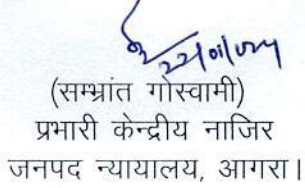 (सम्भ्रांत गोस्वामी)
प्रभारी केन्द्रीय नाजिर
जनपद न्यायालय, आगरा।